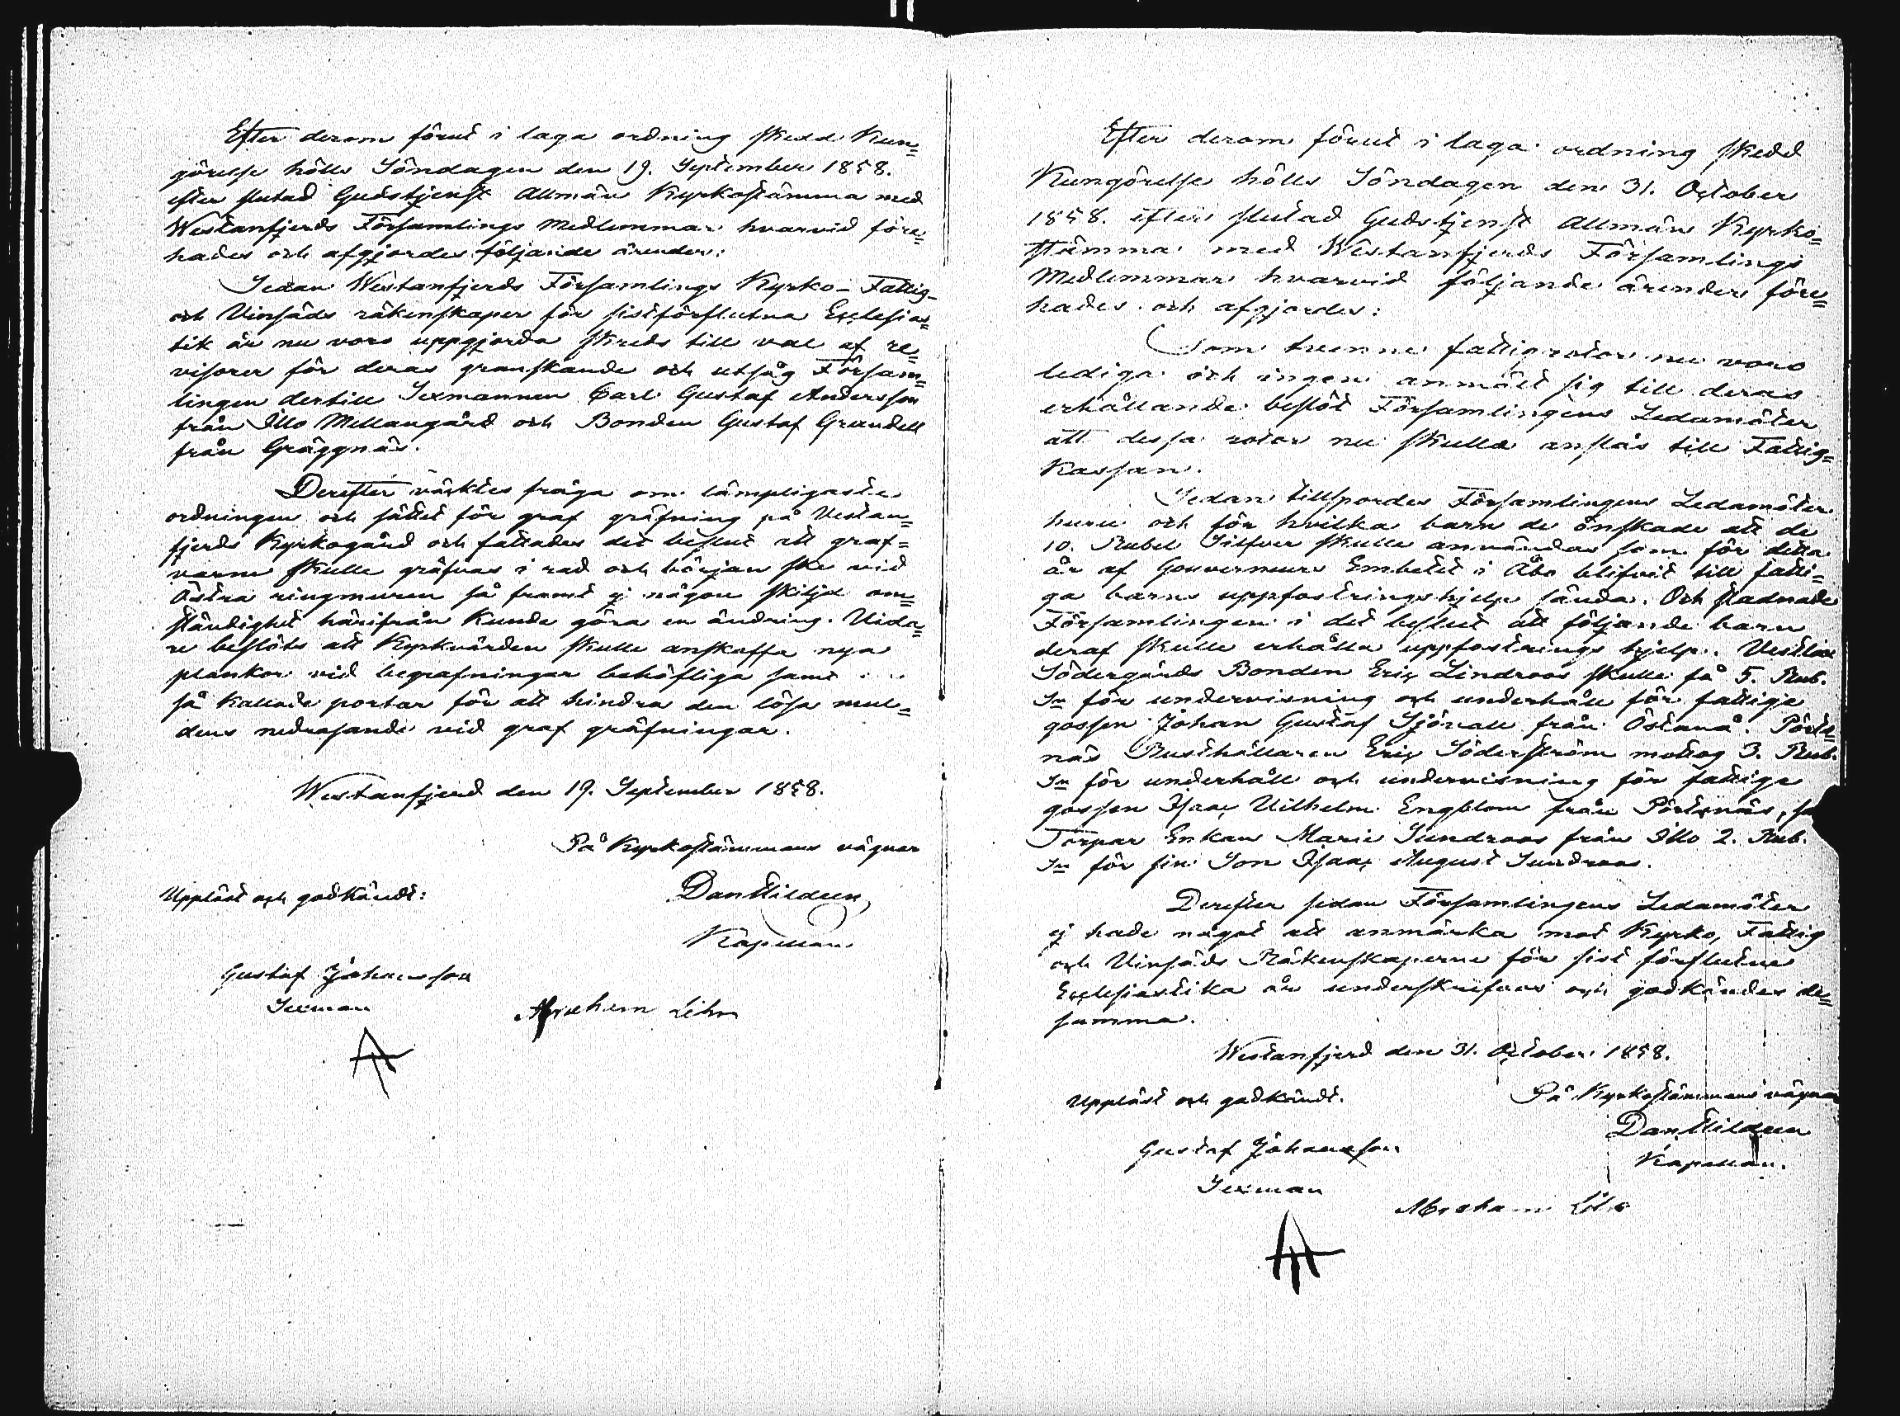 Efter derom förut i laga ordning skedd Kun=
görelse hölls Söndagen den 19. September 1858.
efter slutad Gudstjenst Allmän Kyrkostämma med
Westanfjerds Församlings Medlemmar hvarvid före=
hades och afgjordes följande ärender:
Sedan Westanfjerds Församlings Kyrko- Fattig-
och Vinsäds räkenskaper för sistförflutna Ecclesias=
tik år nu voro uppgjorda skreds till val af re=
visorer för deras granskande och utsåg Försam=
lingen dertill Sexmannen Carl Gustaf Andersson
från Illo Mellangård och Bonden Gustaf Grundell
från Gräggnäs.
Derefter väcktes fråga om lämpligaste
ordningen och sättet för graf gräfning på Vestan=
fjerds Kyrkogård och fattades det beslut att graf=
varne skulle gräfvas i rad och början ske vid
Östra ringmuren så framt ej någon skilja om=
ständighet härifrån kunde göra en ändring. Vida=
re beslöts att Kyrkvärden skulle anskaffa nya
plankor vid begrafningar behöfliga samt
så kallade portar för att hindra den lösa mul=
dens nedrasande vid graf gräfningar.
Westanfjerd den 19. September 1858.
På Kyrkostämmans vägnar
Uppläst och godkändt:
Dan
Kapellan.
Gustaf Johansson
Sexman
Abraham
Efter derom förut i laga ordning skedd
Kungörelse hölls Söndagen den 31. October
1858. efter slutad Gudstjenst Allmän Kyrko=
stämma med Westanfjerds Församlings
Medlemmar hvarvid följande ärender före=
hades och afgjordes:
Som tvenne fattigrotor nu voro
lediga och ingen anmält sig till deras
erhållande beslöt Församlingens Ledamöter
att dessa rotor nu skulle anslås till Fattig=
Kassan.
Sedan tillspordes Församlingens Ledamöter
huru och för hvilka barn de önskade att de
10. Rubel Silfver skulle användas som för detta
år af Gouverneurs Embetet i Åbo blifvit till fatti=
ga barns uppfostringshjelp sända. Och stadnade
Församlingen i det beslut att följande barn
deraf skulle erhålla uppfostrings hjelp. Vestlax
Södergårds Bonden Eric Lindroos skulle få 5. Rub.
Sr för undervisning och underhåll för fattige
gossen Johan Gustaf Sjövall från Östanå. Pörts=
näs Rusthållaren Eric Söderström mottog 3. Rub.
Sr för underhåll och undervisning för fattige
gossen Isaac Vilhelm Engblom från Pörtsnäs,
Torpar Enkan Maria Sundroos från Illo 2. Rub.
Sr för sin Son Isaac August Sundroos.
Derefter sedan Församlingens Ledamöter
ej hade något att anmärka mot Kyrko, Fattig
och Vinsäds Räkenskaperne för sist förflutne
Ecclesiastika år underskrefvos och godkändes de=
samma.
Westanfjerd den 31. October 1858.
Uppläst och godkändt.
På Kyrkostämmans vägnar
Dan
Kapellan.
Gustaf Johansson
Sexman
Abraham